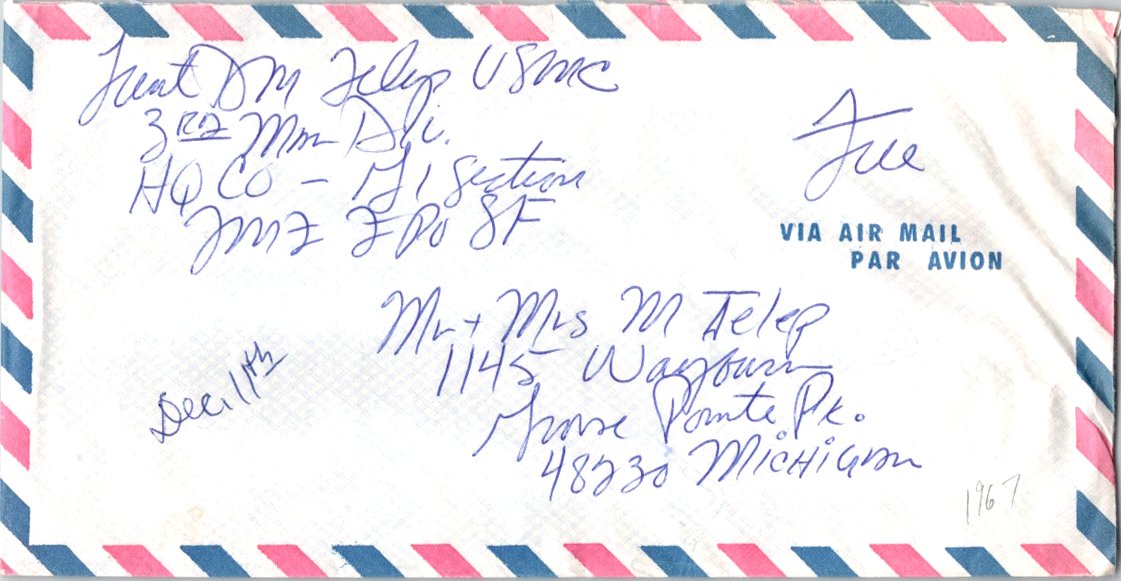 Lieut DM Telep USMC
3RD Mar Div.
HQ CO - G1 Section
FMF FPO SF
Free
VIA AIR MAIL
PAR AVION
Mr + Mrs M Telep
1145 Wayburn
Grosse Pointe Pk.
48230 Michigan
Dec. 11th
1967